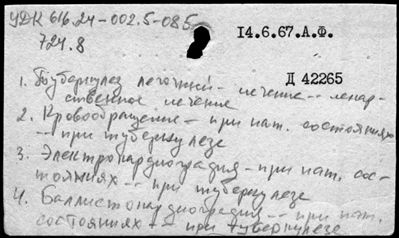 УДК 616.24-002.5-085
724.8
14.6.67.А.Ф.
Д 42265
1. Туберкулез легочный - лечение -- лекар-
ственное лечение
2. Кровообращение - при пат. состояниях
-- при туберкулезе
3. Электрокардиография - при пат. сос-
тояниях -- при туберкулезе
4. Баллистокардиография -- при пат.
состояниях -- при туберкулезе